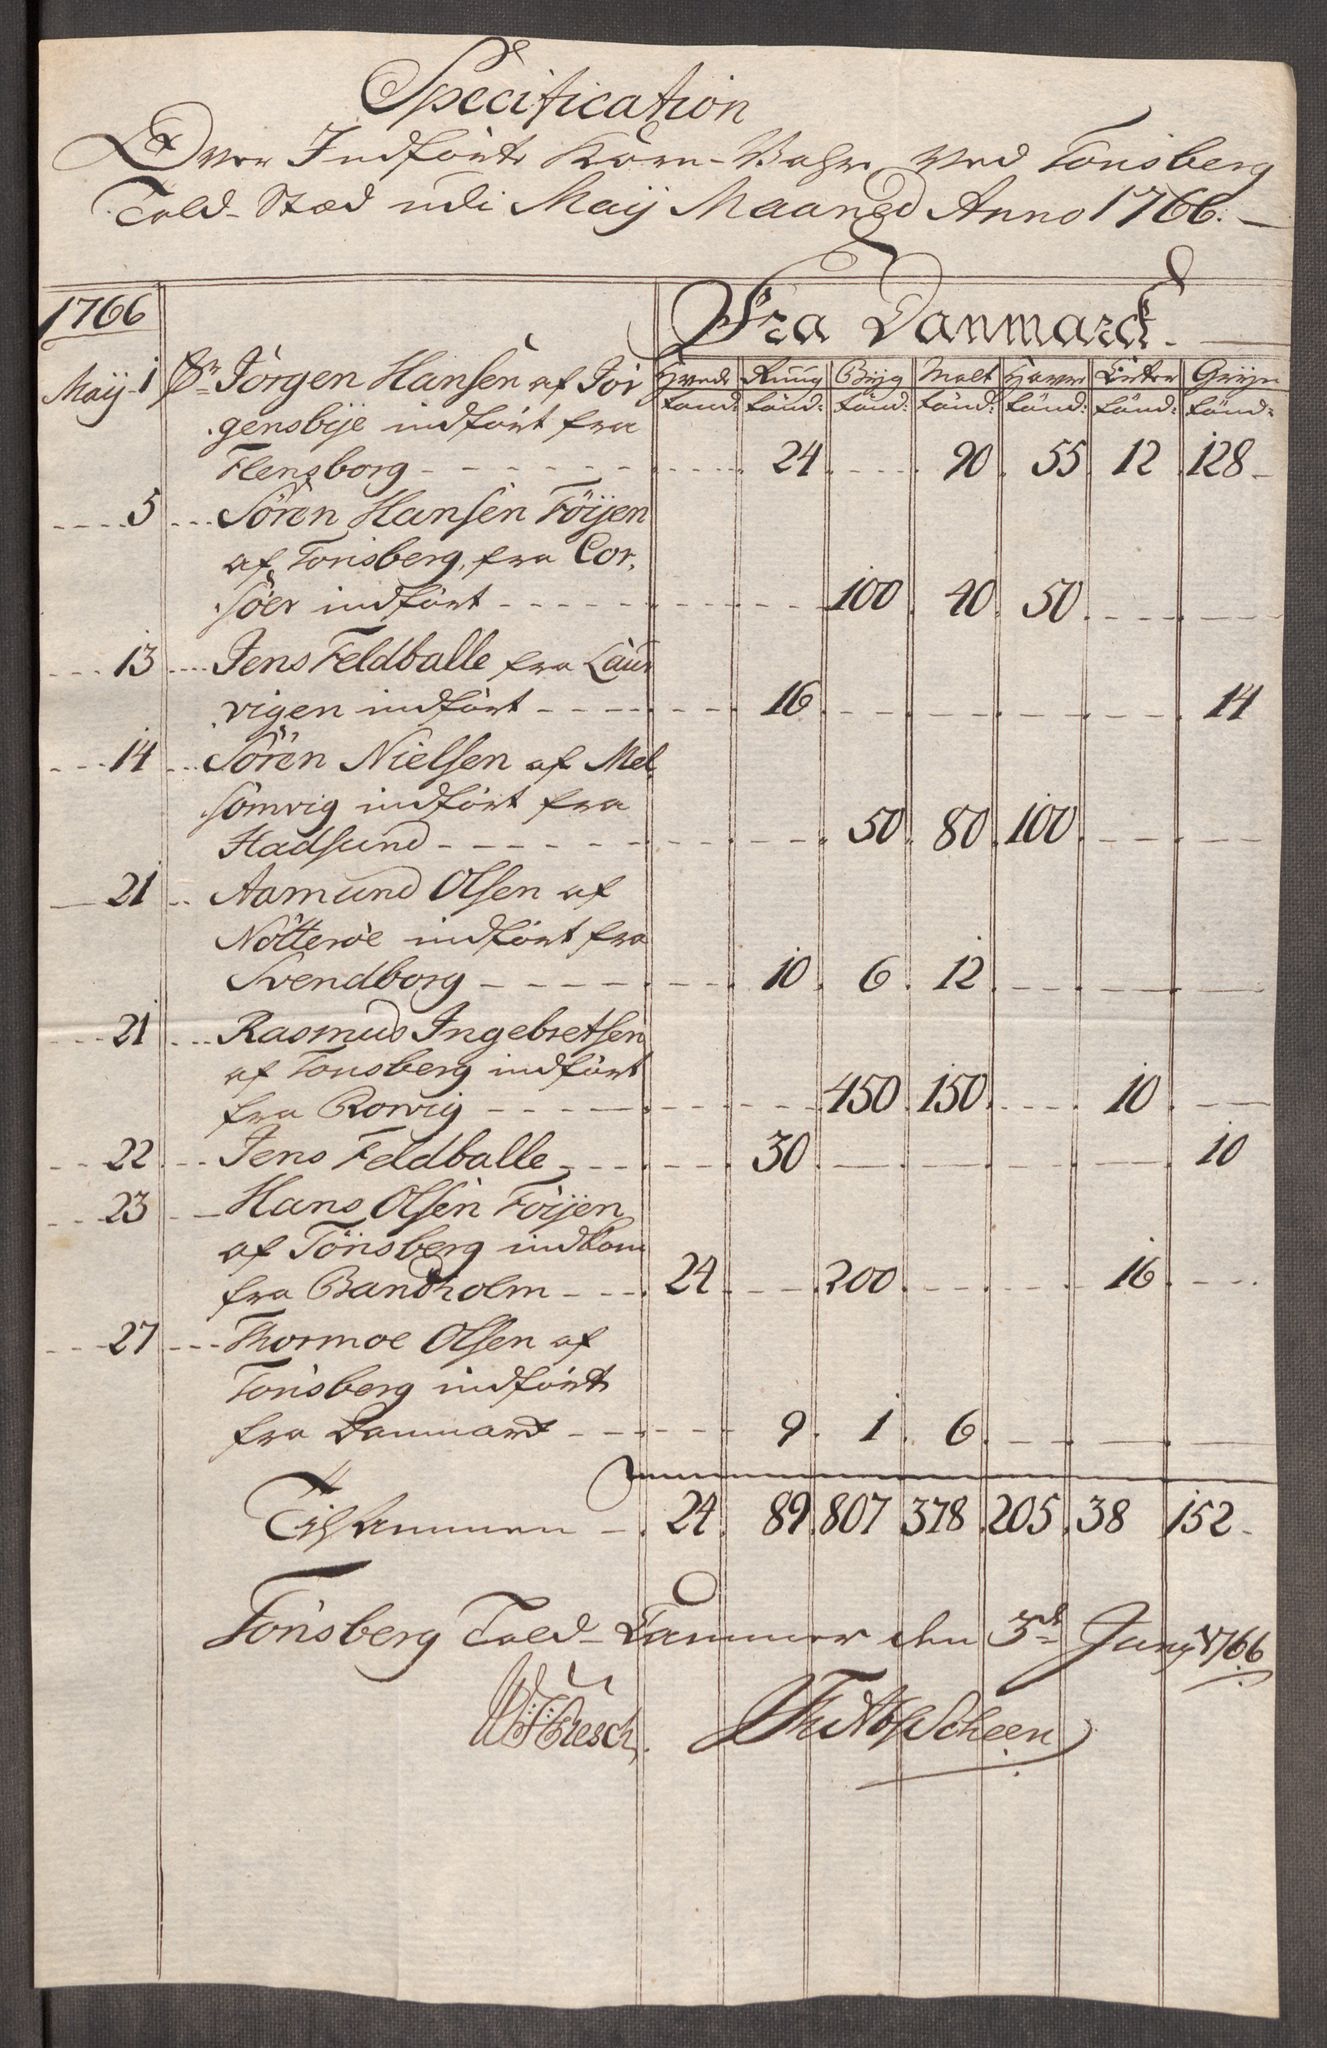 Specification
Over Indførte Korn-Vahre ved Tonsberg
Told-Stæd udi Maij Maaned Anno 1766.
1766 Fra Danmarck.
Hvede Rúug Bÿg Malt Havre Erter Grÿn
tønd: tønd: tønd: tønd: tønd: tønd: tønd:
Maij 1 Sr Jørgen Hansen af Jør
gensbÿe indført fra
Flensborg 24 90 55 12 128
5 Søren Hansen Føÿen
af Tonsberg, fra Cor-
søer indført 100 40 50
13 Jens Feldballe fra Laur
vigen indført 16 14
14 Søren Nielsen af Mel
somvig indført fra
Hadsund 50 80 100
21 Aamund Olsen af
Nötterøe indført fra
Svendborg 10 6 12
21 Rasmus Ingebretsen
af Tonsberg indført
fra Rorvig 450 150 10
22 Jens Feldballe 30 10
23 Hans Olsen Føÿen
af Tönsberg indkom
fra Bandholm 24 200 16
27 Thormoe Olsen af
Tonsberg indførte
fra Danmark 9 1 6
Tilsammen 24 89 807 378 205 38 152
Tonsberg Told-Cammer den 3de Junÿ 1766
Scheen